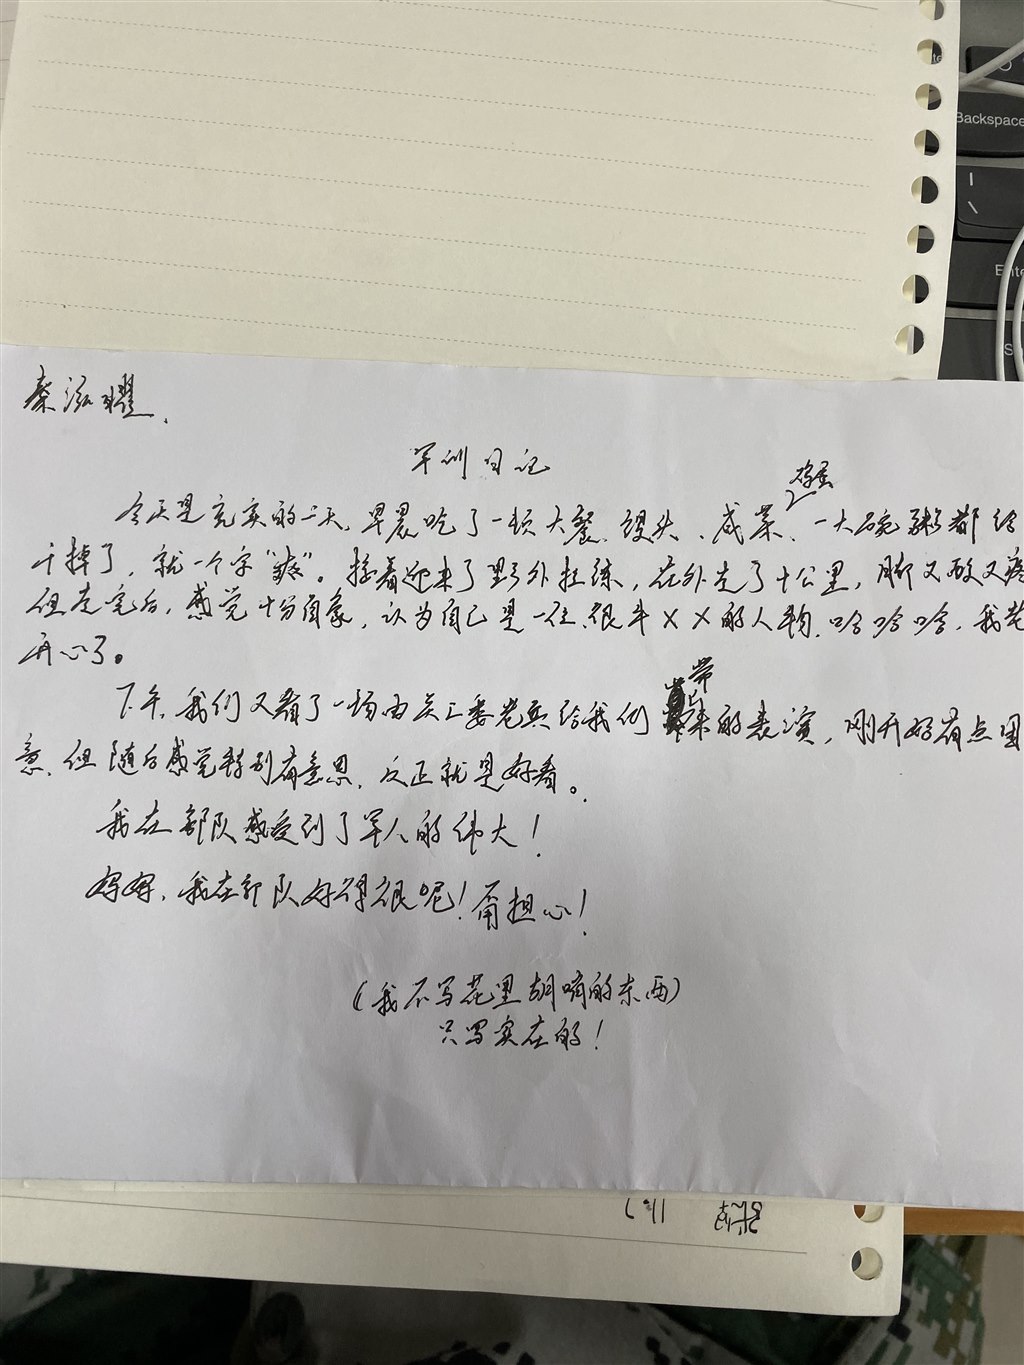 Backspace
Ente
S
秦泓曜.
军训日记
今天是充实的一天,早晨吃了一顿大餐,馒头、咸菜、鸡蛋、一大碗粥都给
干掉了,就一个字“爽”。接着迎来了野外拉练,在外走了十公里,脚又酸又疼
但走完后,感觉十分自豪,认为自己是一位很牛××的人物,哈哈哈,我老
开心了。
下午,我们又看了一场由关工委老兵给我们带来的表演,刚开始有点困
意,但随后感觉特别有意思,反正就是好看。
我在部队感受到了军人的伟大!
妈妈,我在部队好得很呢!甭担心!
(我不写花里胡哨的东西)
只写实在的!